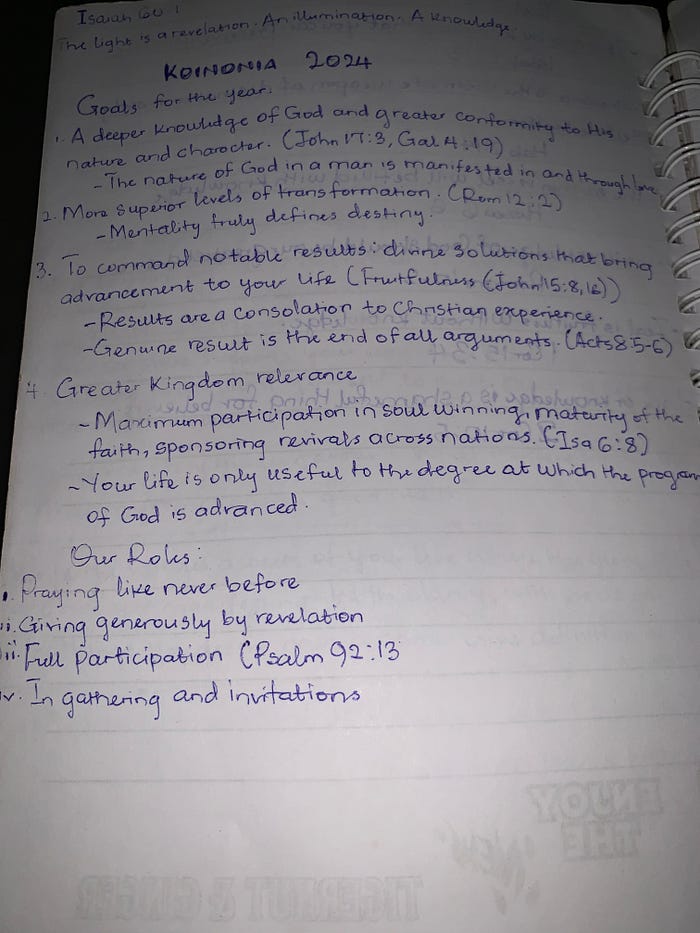 Isaiah 60:1
The light is a revelation. An illumination. A knowledge.
KOINONIA 2024
Goals for the year.
1. A deeper knowledge of God and greater conformity to His
nature and character. (John 17:3, Gal 4:19)
- The nature of God in a man is manifested in and through love
2. More superior levels of transformation. (Rom 12:2)
- Mentality truly defines destiny.
3. To command notable results: divine solutions that bring
advancement to your life (Fruitfulness (John 15:8,16))
- Results are a consolation to Christian experience.
- Genuine result is the end of all arguments. (Acts 8:5-6)
4. Greater Kingdom relevance
- Maximum participation in soul winning, maturity of the
faith, sponsoring revivals across nations. (Isa 6:8)
- Your life is only useful to the degree at which the program
of God is advanced.
Our Roles:
i. Praying like never before
ii. Giving generously by revelation
iii. Full participation (Psalm 92:13
iv. In gathering and invitations
ENJOY
THE
TIGERNUT & GINGER